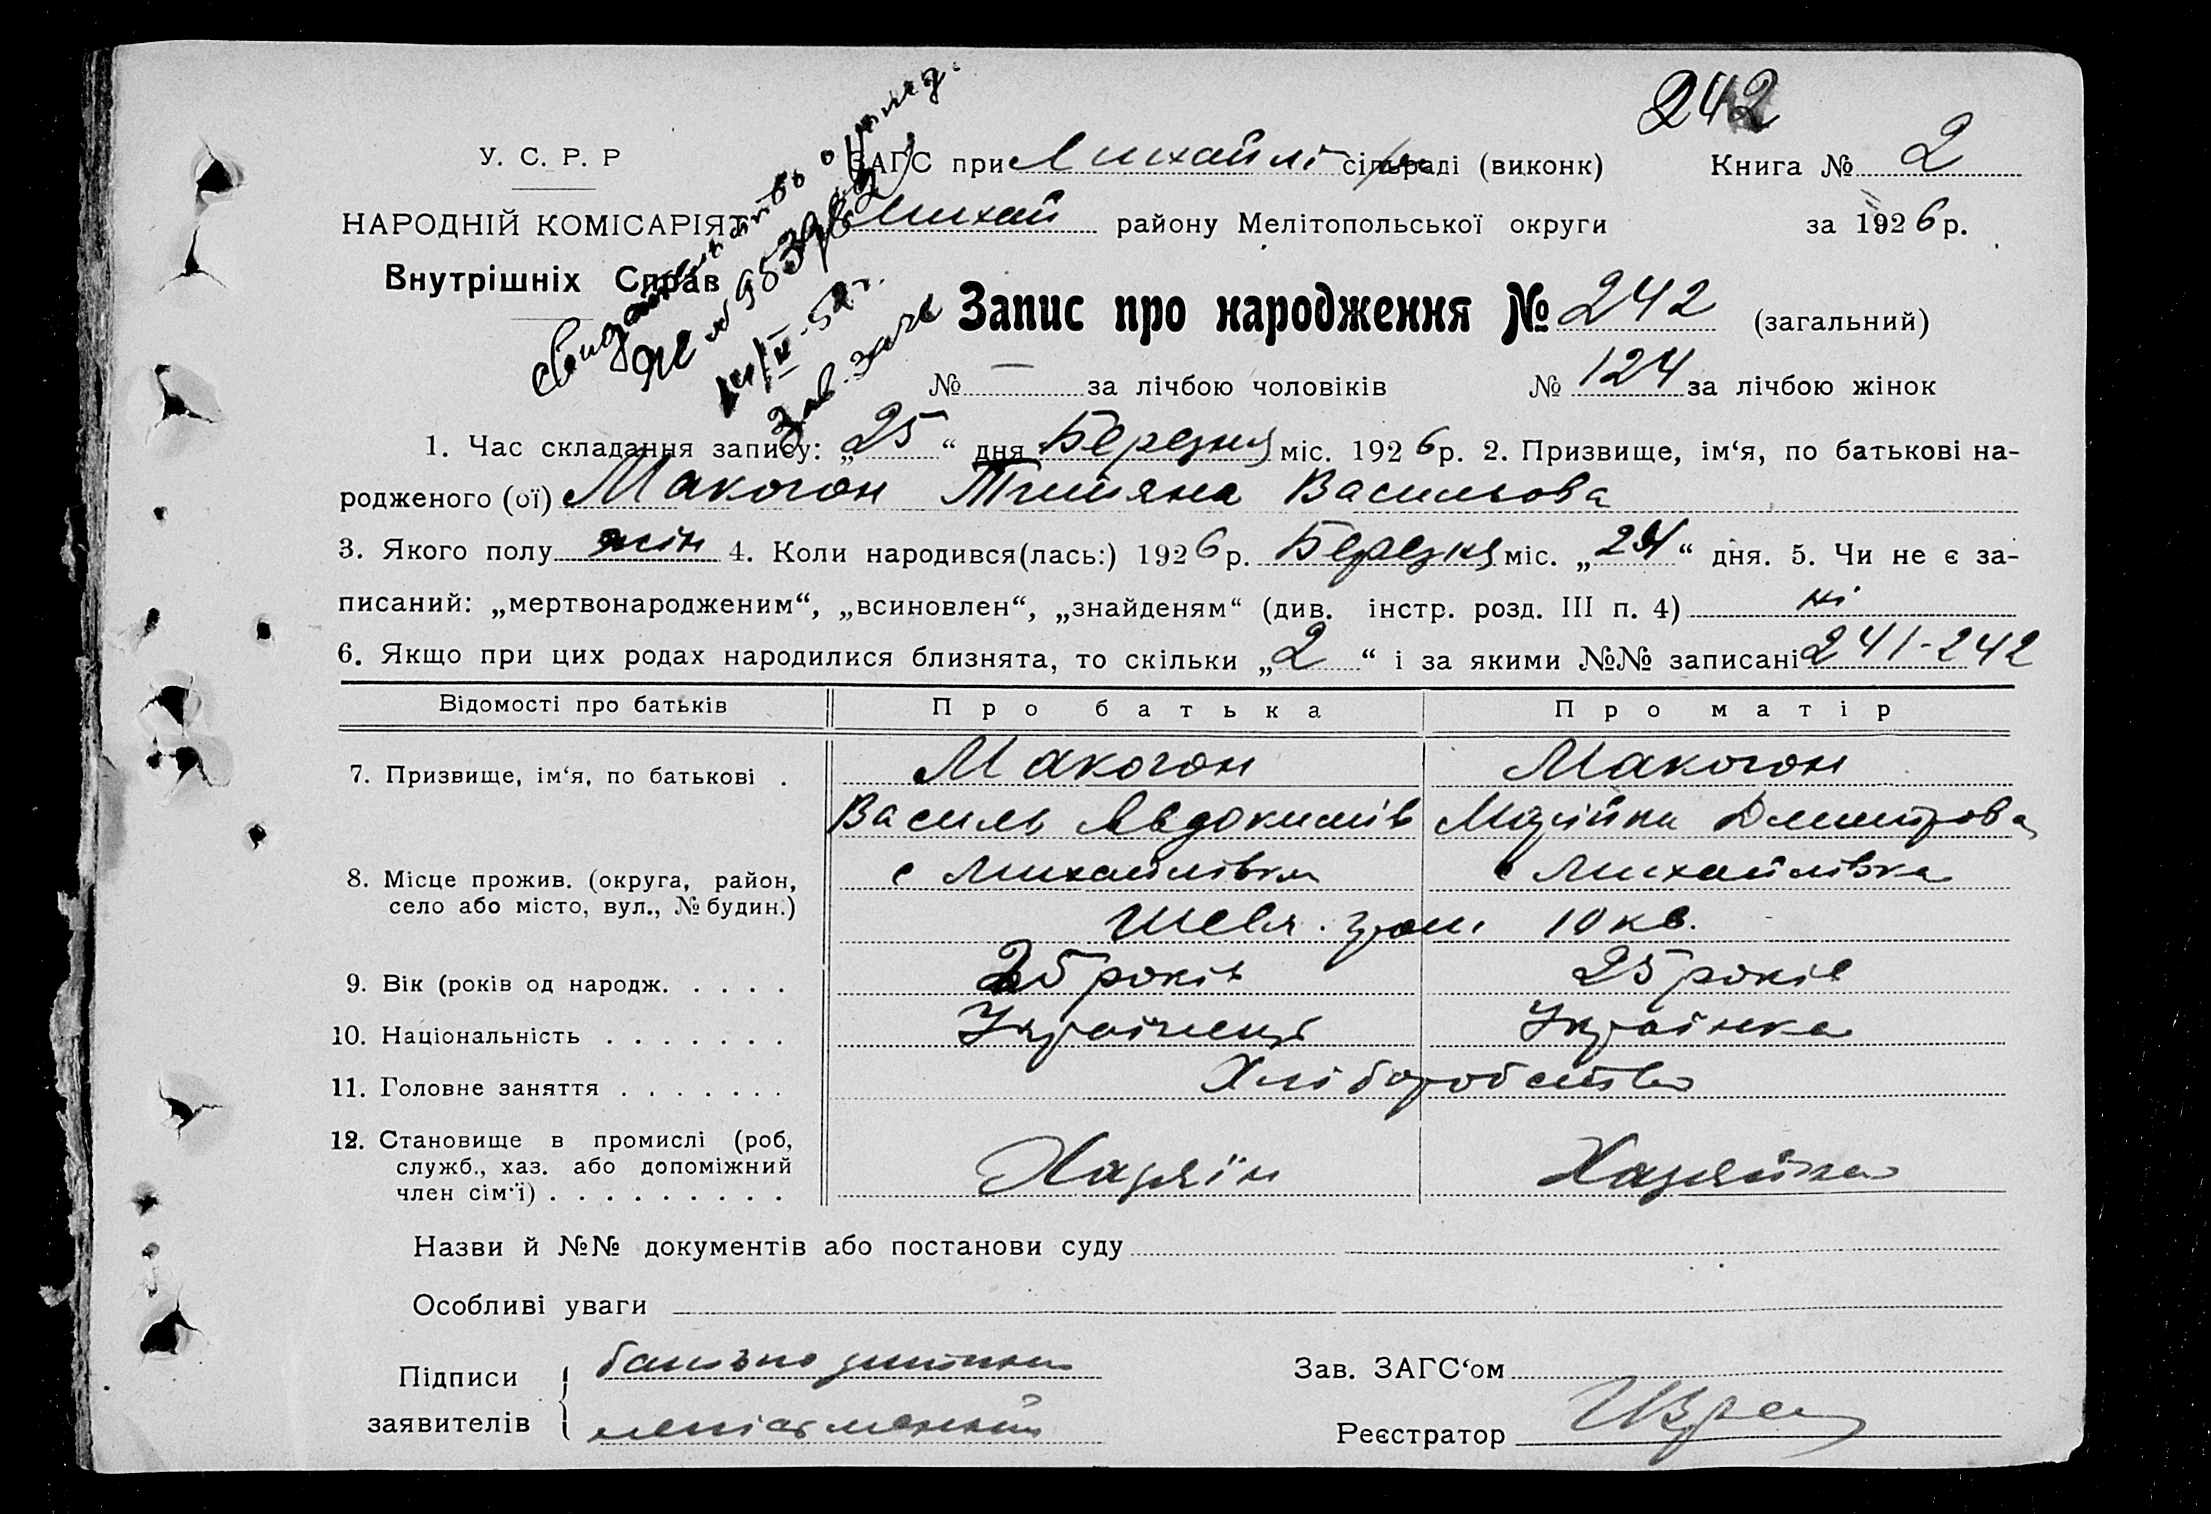 242
У. С. Р. Р
ЗАГС при Михайлі сільраді (виконк) Книга № 2
НАРОДНІЙ КОМІСАРІЯТ Михай району Мелітопольської округи за 1926 р.
Внутрішніх Справ
Запис про народження № 242 (загальний)
№ — за лічбою чоловіків № 124 за лічбою жінок
1. Час складання запису: „25“ дня Березня міс. 1926 р. 2. Призвище, ім‘я, по батькові на-
родженого (ої) Макогон Титяна Васильова
3. Якого полу жін 4. Коли народився(лась:) 1926 р. Березня міс. „24“ дня. 5. Чи не є за-
писаний: „мертвонародженим“, „всиновлен“, „знайденям“ (див. інстр. розд. III п. 4) ні
6. Якщо при цих родах народилися близнята, то скільки „2“ і за якими №№ записані 241-242
Відомості про батьків Про батька Про матір
7. Призвище, ім‘я, по батькові . Макогон Макогон
Василь Явдокимів Марійка Дмитрова
8. Місце прожив. (округа, район, с Михайлівка с Михайлівка
село або місто, вул., № будин.)
Шевч. гром. 10 кв.
9. Вік (років од народж. . . . . 25 років 25 років
10. Національність . . . . . . . Українець Українка
11. Головне заняття . . . . . . . Хліборобство
12. Становище в промислі (роб,
служб., хаз. або допоміжний Хазяїн Хазяйка
член сім‘ї) . . . . . . . . .
Назви й №№ документів або постанови суду
Особливі уваги
Підписи батько дитини Зав. ЗАГС‘ом
заявителів неписьменний Реєстратор
свидетельство
ЯЕ №
Зав. Загс